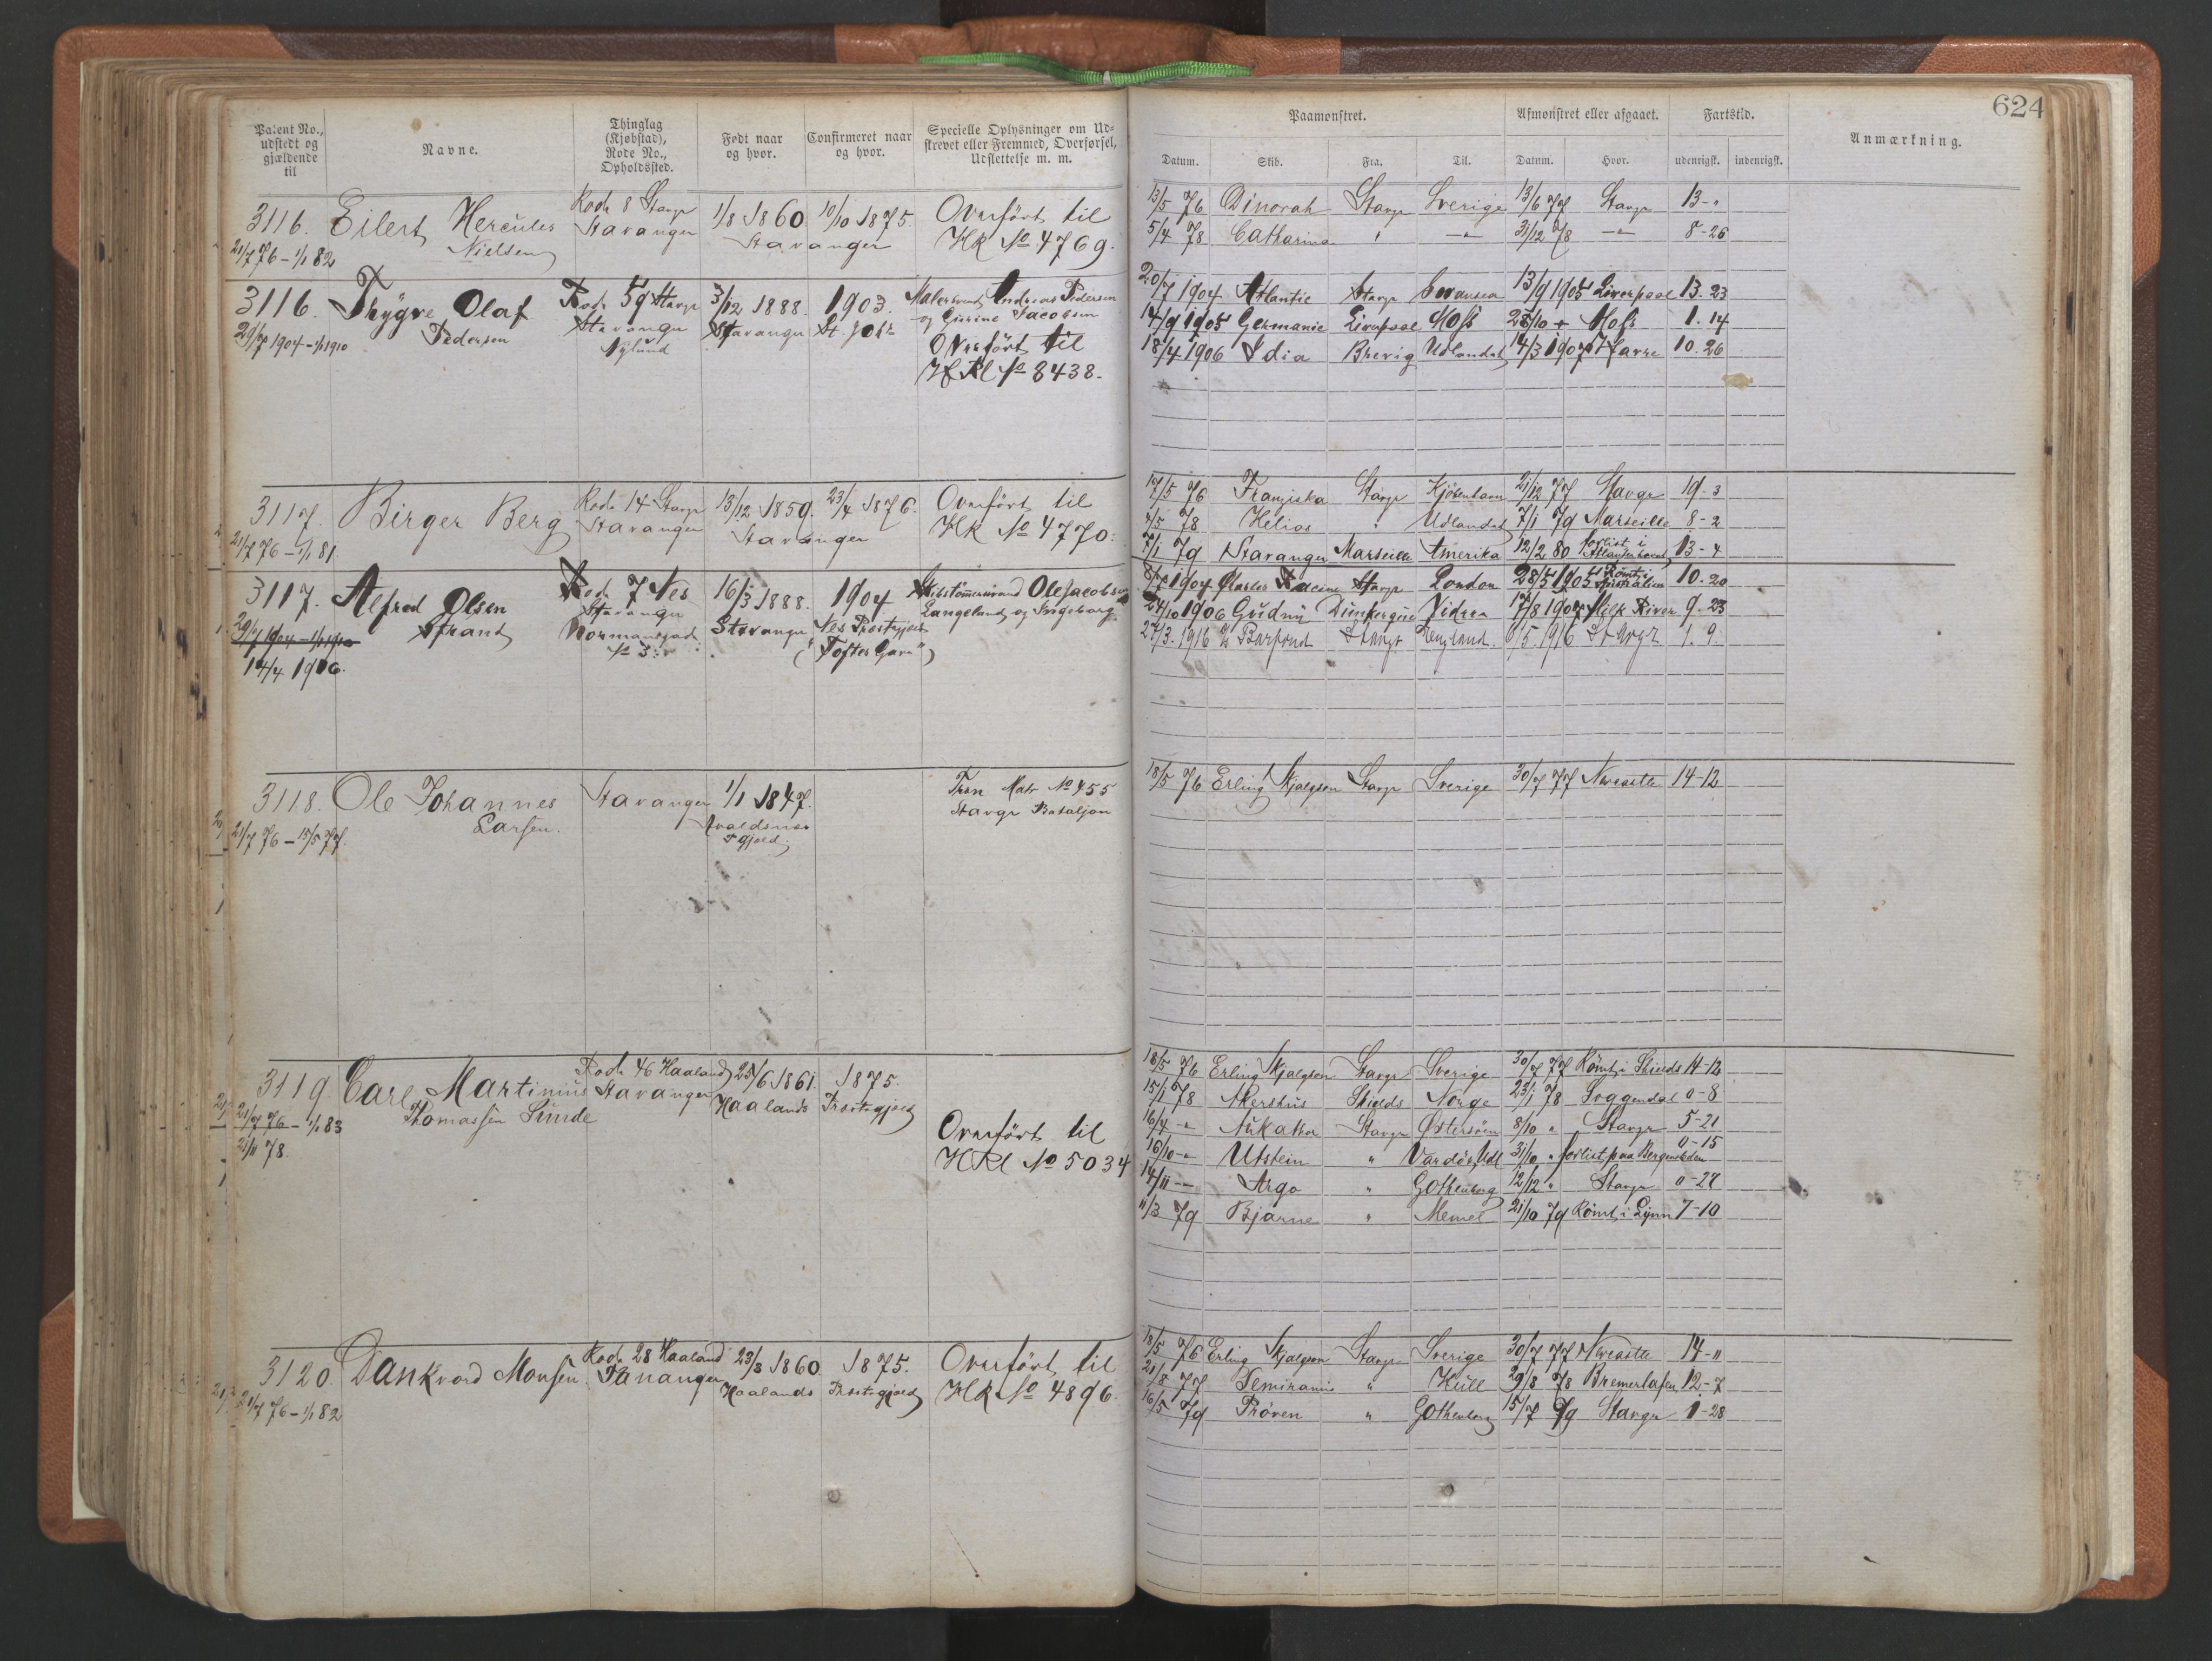 624
Patent No., udstedt og gjældende til
Navne.
Thinglag (Kjøbstad), Rode No., Opholdssted.
Født naar og hvor.
Confirmeret naar og hvor.
Specielle Oplysninger om Udskrevet eller Fremmed, Overførsel, Udslettelse m. m.
Paamønstret.
Afmønstret eller afgaaet.
Fartstid.
Anmærkning.
Datum. Skib. Fra. Til. Datum. Hvor. udenrigsk. indenrigsk.
3116. Eilert Hercules Nielsen
21/7 76 - 1/1 82
Rode 8 Stavgr
Stavanger
1/8 1860 10/10 1875.
Stavanger
Overført til
HR No 4769.
13/5 76 Dinorah Stavgr Sverige 13/6 77 Stavgr 13-"
5/4 78 Catharina " -"- 31/12 78 -"- 8-26
3116. Thygve Olaf Pedersen
29/7 1904 - 1/1 1910
Rode 59 Stavgr
Stavanger
Nylund
3/12 1888. 1903.
Stavanger St. Joh.
Malersvend Andreas Pedersen
og Gurine Jacobsen
Overført til
HRl No 8438.
20/7 1904 Atlantic Stavgr Swansea 13/9 1905 Liverpool 13. 23
14/9 1905 Germanic Liverpool Moss 28/10 Moss 1. 14
18/4 1906 Edia Brevig Udlandet 14/3 1907 Havre 10. 26
3117. Birger Berg
21/7 76 - 1/1 81.
Rode 14 Stavgr
Stavanger
13/12 1859. 23/4 1876.
Stavanger
Overført til
HR No 4770.
17/5 76 Franziska Stavgr Kjøbenhavn 21/12 77 Stavgr 19-3
5/5 78 Helios " Udlandet 7/1 79 Marseille 8-2
7/1 79 Stavanger Marseille Amerika 12/2 80 forlist i Atlanterhavet 13-4
3117. Alfred Olsen Strand
29/7 1904 - 1/1 1910
14/4 1916.
Rode 7 Nes
Stavanger
Normansgade
No 3
16/3 1888. 1904
Stavanger Nes Præstegjeld
("Toftes Gave")
Skibstømmermand Ole Jacobsen
Langeland og Ingeborg
8/7 1904 Charles Racine Stavgr London 28/5 1905 Rømt i Australien 10. 20
24/10 1906 Gudny Dunkerque Vidrea 17/8 1907 Milk River 9. 23
27/3. 1916 Barfond Stavgr England. 6/5. 1916 Stavgr 1. 9.
3118. Ole Johannes Larsen.
21/7 76 - 15/5 77.
Stavanger
1/1 1847.
Avaldsnes
Pgjeld.
Træn Matr No 455
Stavgr Bataljon
18/5 76 Erling Skjalgsøn Stavgr Sverige 30/7 77 Newcastle 14-12
3119. Carl Martinius Thomassen Sunde
21/7 76 - 1/1 83
21/11 78.
Rode 46 Haaland
Stavanger
25/6 1861. 1875.
Haalands Præstegjeld
Overført til
HRl No 5034
18/5 76 Erling Skjalgsøn Stavgr Sverige 30/7 77 Rømt i Shields 14-12
15/1 78 Akershus Shields Norge 23/1 78 Soggendal 0-8
16/4 -"- Aukathor Stavgr Østersøen 8/10 " Stavgr 5-21
16/10 -"- Utstein " Vardø & Udl 31/10 " forlist paa Bergensleden 0-15
14/11 -"- Argo " Gothenborg 12/12 " Stavgr 0-28
11/3 79 Bjarne " Memel 21/10 79 Rømt i Lynn 7-10
3120. Dankvard Monsen
21/7 76 - 1/1 82
Rode 28 Haaland
Tananger
23/3 1860. 1875.
Haalands Præstegjeld
Overført til
HR No 4896.
18/5 76 Erling Skjalgsøn Stavgr Sverige 30/7 77 Newcastle 14-"
21/8 77 Semiramis " Hull 29/8 78 Bremerhafen 12-7
16/5 79 Prøven " Gothenborg 15/7 79 Stavgr 1-28